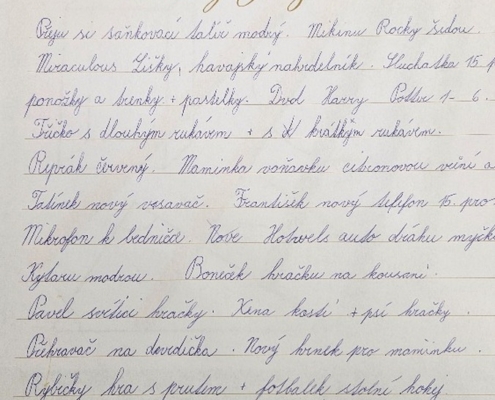 Přeju si saňkovací talíř modrý. Mikinu Rocky šedou.
Miraculous Lišky, havajský nahrdelník. Sluchatka 15 p
ponožky a trenky + pastelky. Dvd Harry Potter 1-6.
Tričko s dlouhým rukávem + s krátkým rukávem.
Reprák červený. Maminka voňavku citronovou
Tatínek nový vysavač. František nový telefon 15. pro
Mikrofon k bedničce. Nove Hotwels auto dráku myčk
Kytaru modrou. Boneček hračku na kousaní.
Pavel svítící hračky. Xena kosti + psí hračky.
Přehravač na dovidička. Nový hrnek pro maminku.
Rybičky hra s prutem + fotbalek stolní hokej